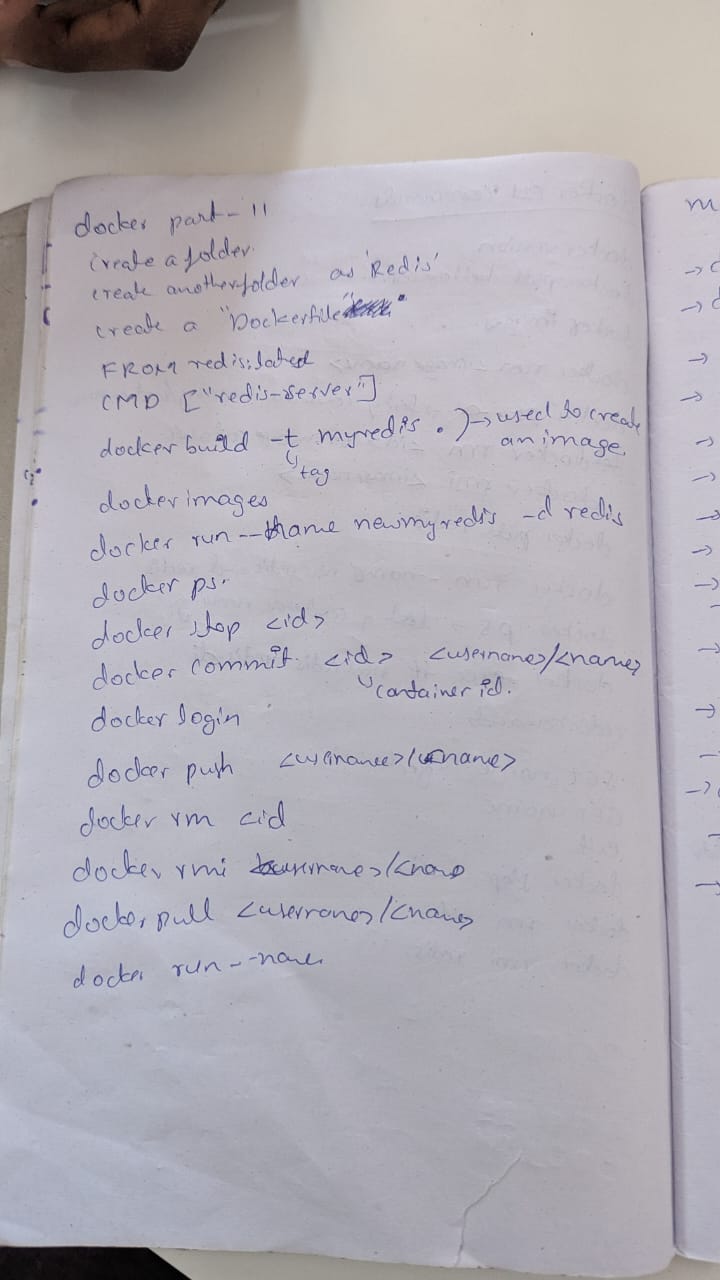 docker part-11
create a folder.
create another folder as 'Redis'
create a "Dockerfile"
FROM redis:lated
CMD ["redis-server"]
docker build -t myredis . ) → used to create
an image.
tag
docker images
docker run --name newmyredis -d redis
docker ps.
docker stop <id>
docker commit <id> <username>/<name>
container id.
docker login
docker push <username>/<name>
docker rm cid
docker rmi <username>/<name>
docker pull <username>/<name>
docker run --name
m